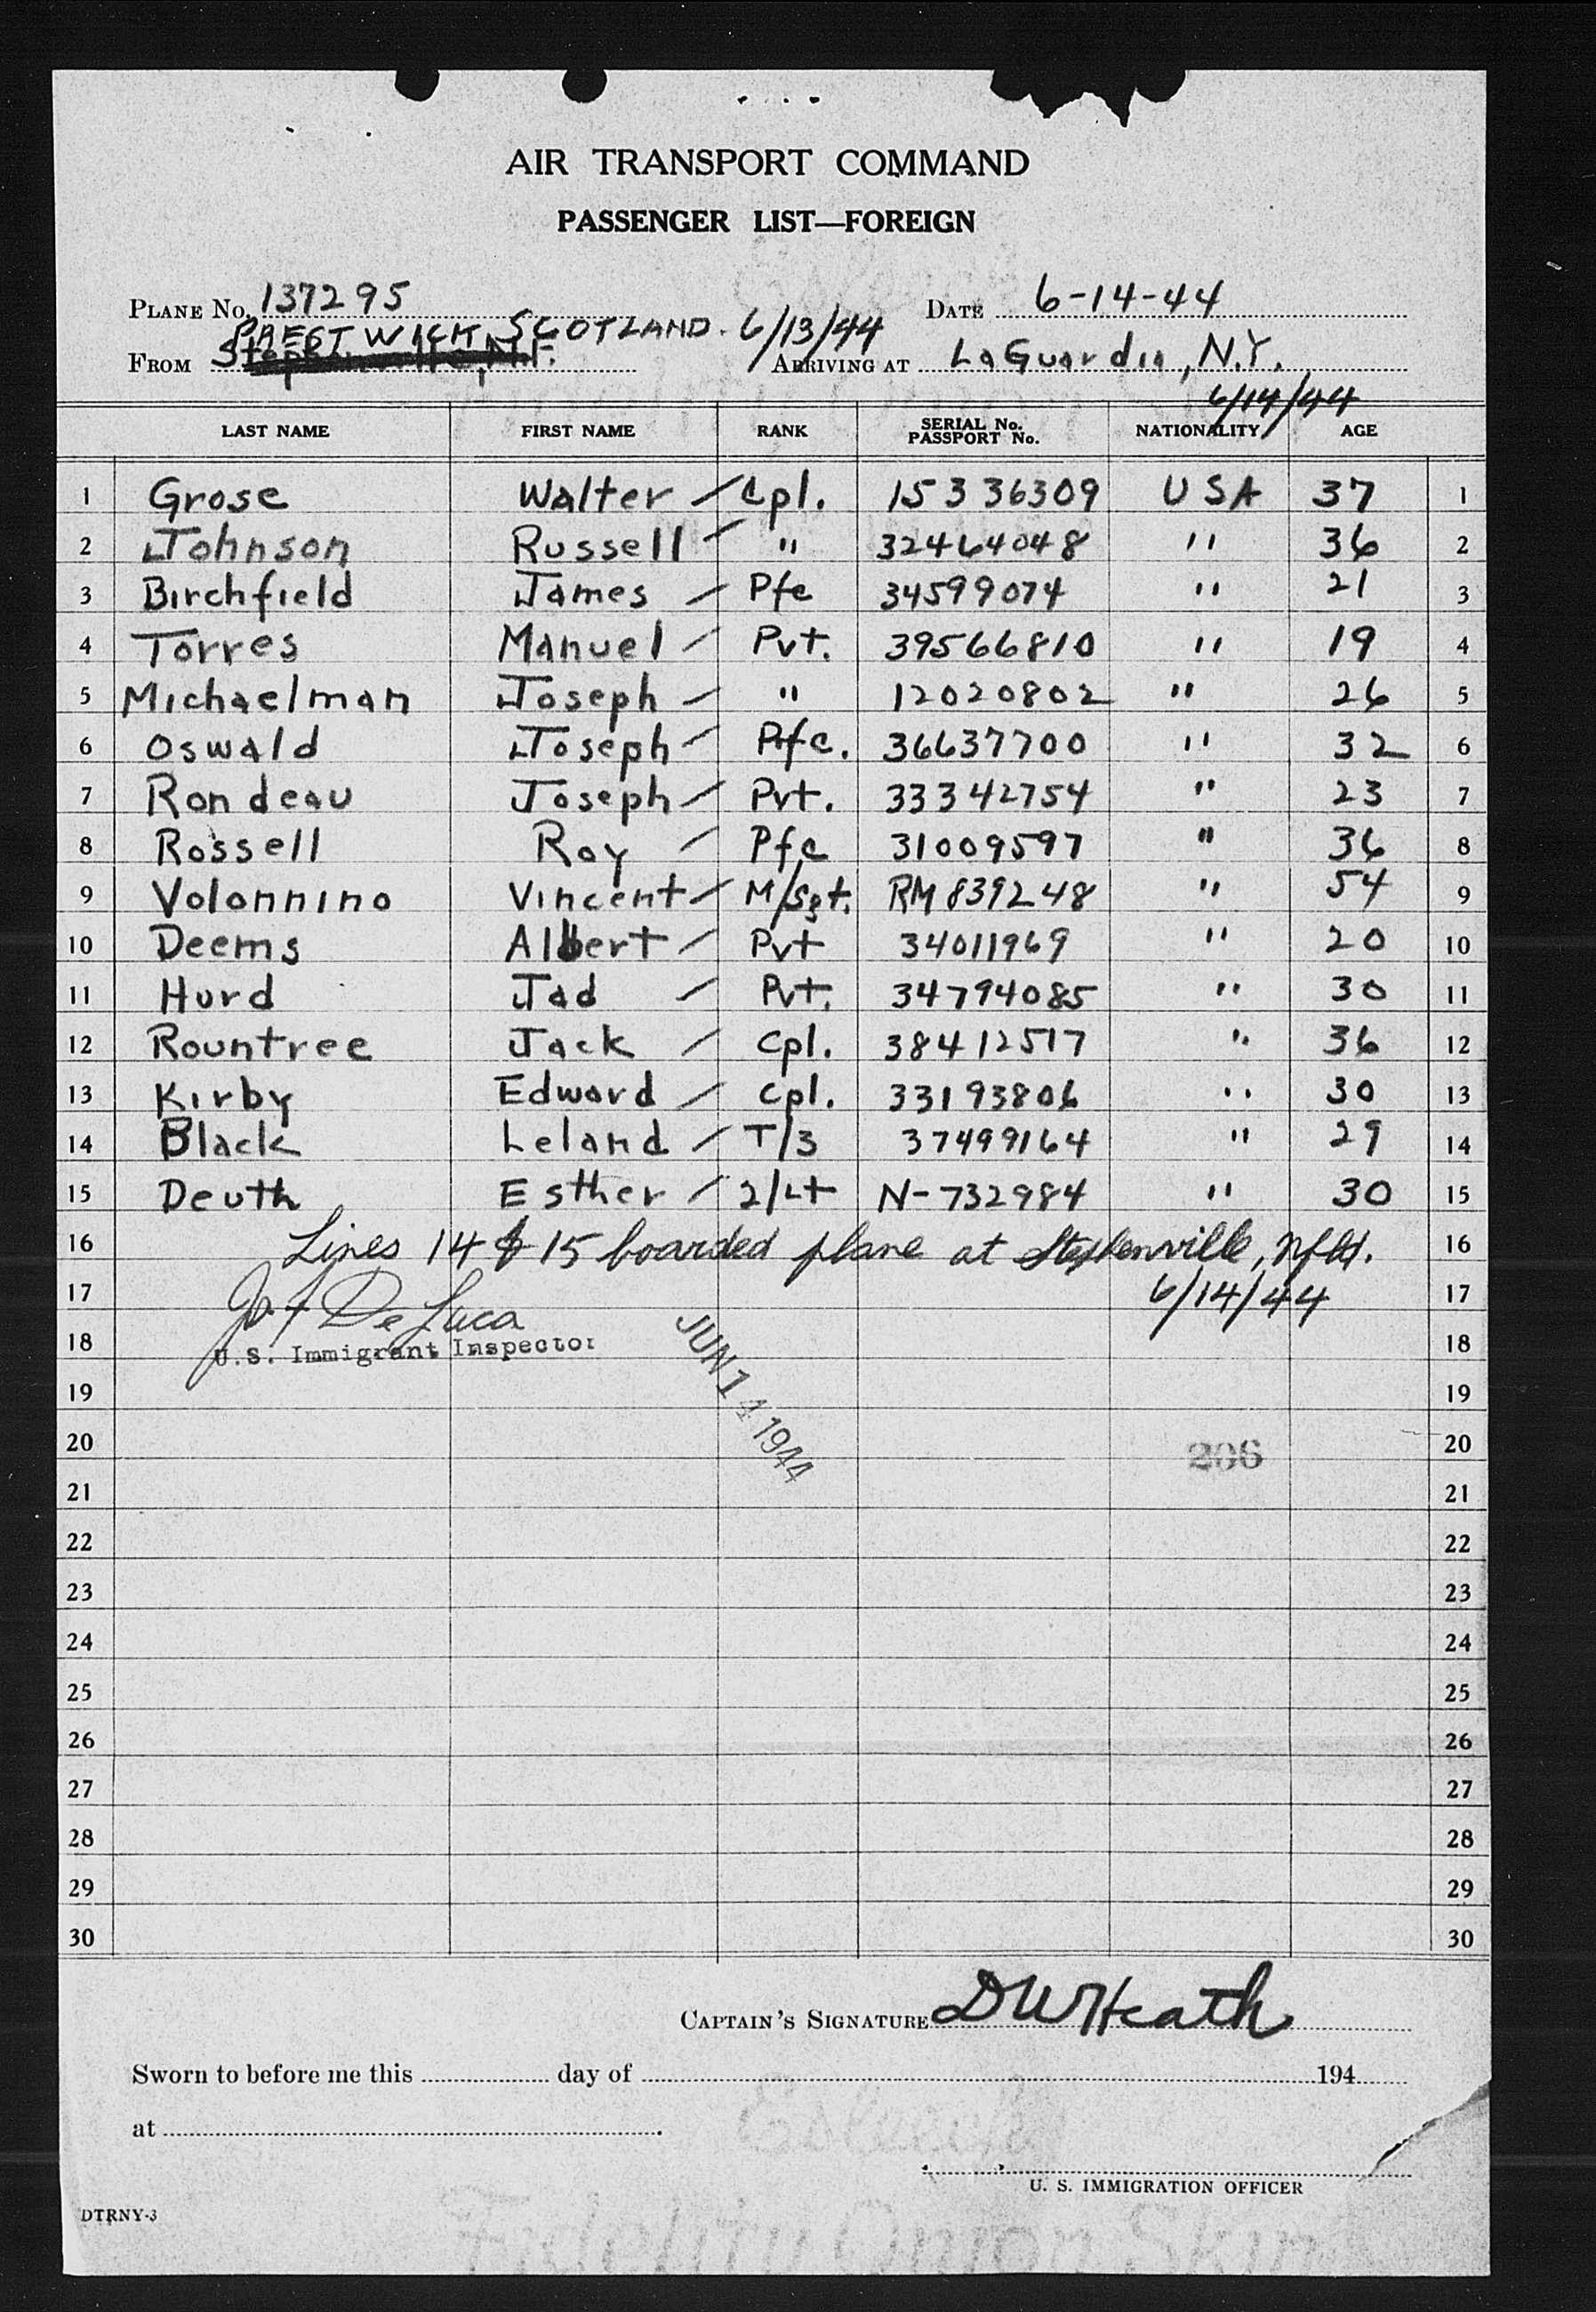 AIR TRANSPORT COMMAND
PASSENGER LIST—FOREIGN
PLANE No. 137295 DATE 6-14-44
PRESTWICK, SCOTLAND. 6/13/44
FROM ARRIVING AT LaGuardia, N.Y.
6/14/44
LAST NAME FIRST NAME RANK SERIAL No. PASSPORT No. NATIONALITY AGE
1 Grose Walter Cpl. 15336309 USA 37 1
2 Johnson Russell " 32464048 " 36 2
3 Birchfield James Pfc 34599074 " 21 3
4 Torres Manuel Pvt. 39566810 " 19 4
5 Michaelman Joseph " 12020802 " 26 5
6 Oswald Joseph Pfc. 36637700 " 32 6
7 Rondeau Joseph Pvt. 33342754 " 23 7
8 Rossell Roy Pfc 31009597 " 36 8
9 Volonnino Vincent M/Sgt. RM 839248 " 54 9
10 Deems Albert Pvt 34011969 " 20 10
11 Hurd Jad Pvt. 34794085 " 30 11
12 Rountree Jack Cpl. 38412517 " 36 12
13 Kirby Edward Cpl. 33193806 " 30 13
14 Black Leland T/3 37499164 " 29 14
15 Deuth Esther 2/Lt N-732984 " 30 15
16 Lines 14 & 15 boarded plane at Stephenville, Nfld. 16
17 6/14/44 17
Jo. F De Luca
18 U.S. Immigrant Inspector 18
JUN 14 1944
19 19
20 206 20
21 21
22 22
23 23
24 24
25 25
26 26
27 27
28 28
29 29
30 30
CAPTAIN'S SIGNATURE DW Heath
Sworn to before me this day of 194
at .
U. S. IMMIGRATION OFFICER
DTRNY-3